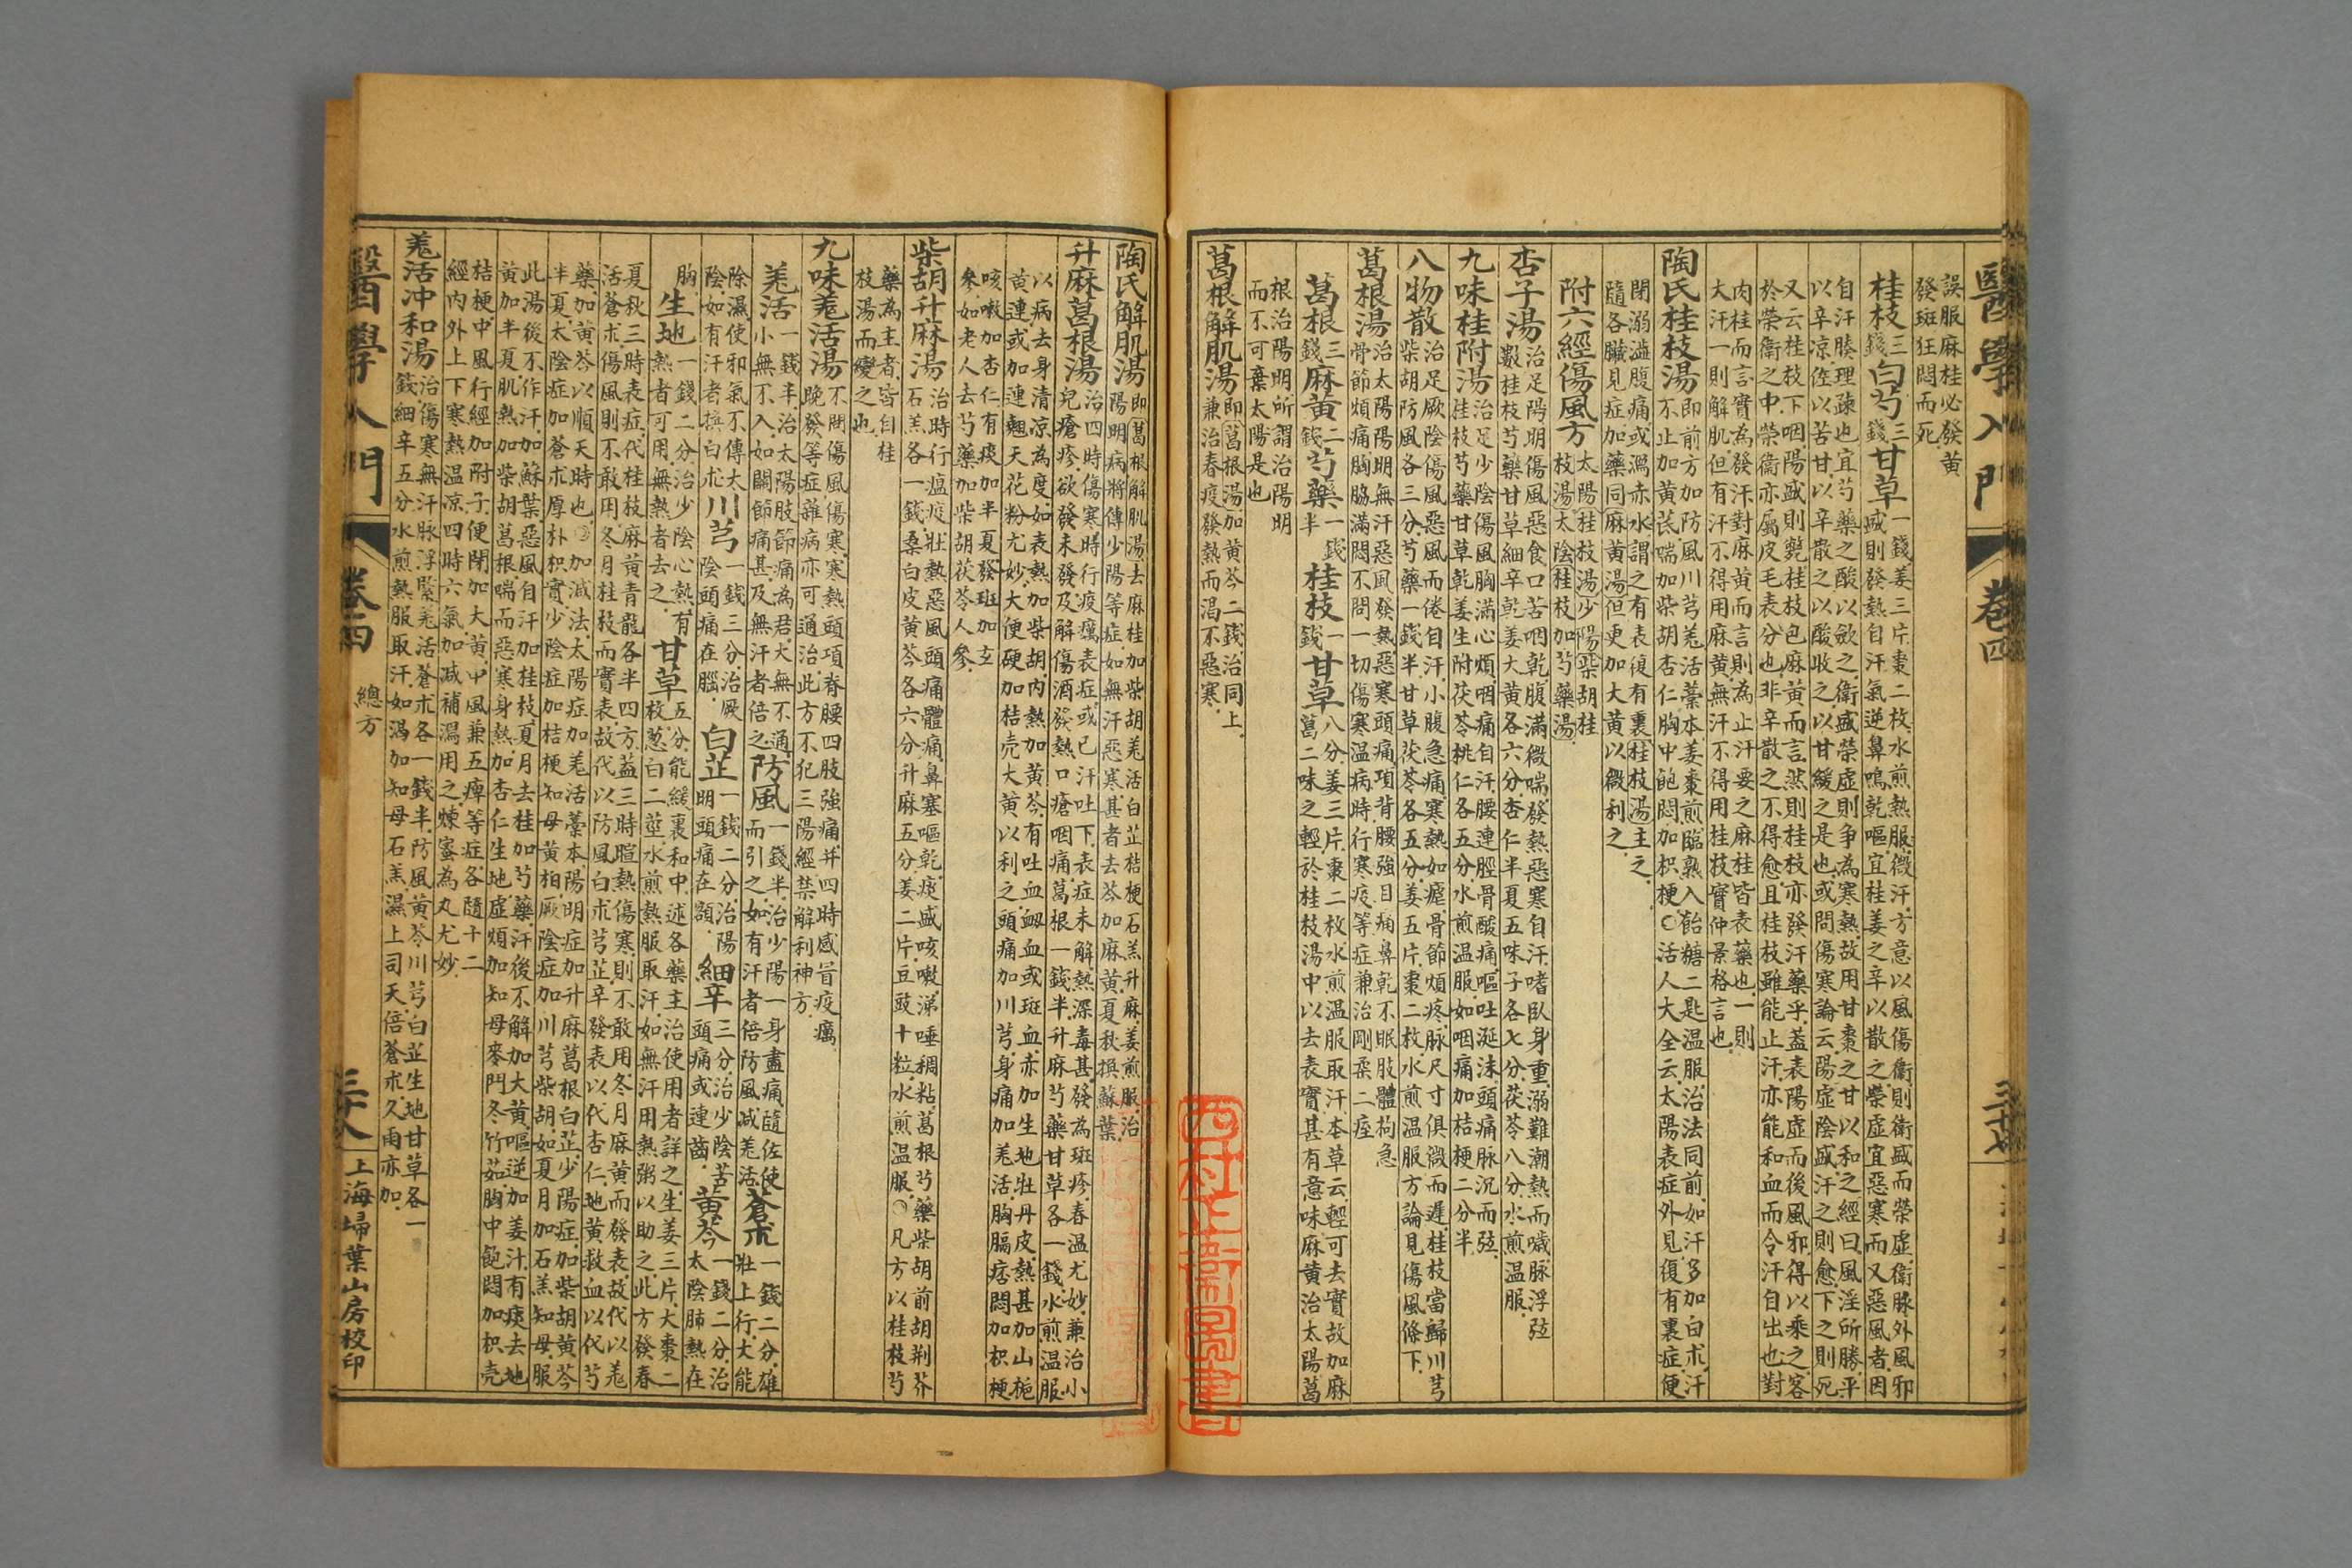 醫學入門 卷四 三十七
誤服麻桂必發黃
發斑狂悶而死
桂枝三錢白芍三錢甘草一錢姜三片棗二枚水煎熱服微汗方意以風傷衛則衛盛而榮虛衛脉外風邪
感則發熱自汗氣逆鼻鳴乾嘔宜桂姜之辛以散之榮虛宜惡寒而又惡風者因
自汗腠理疎也宜芍藥之酸以歛之衛盛榮虛則爭為寒熱故用甘棗之甘以和之經曰風淫所勝平
以辛凉佐以苦甘以辛散之以酸收之以甘緩之是也或問傷寒論云陽虛陰盛汗之則愈下之則死
又云桂枝下咽陽盛則斃桂枝色麻黃而言然則桂枝亦發汗藥乎盖表陽虛而後風邪得以乘之客
於榮衛之中榮衛亦屬皮毛表分也非辛散之不得愈且桂枝雖能止汗亦能和血而令汗自出也對
肉桂而言實為發汗對麻黃而言則為止汗要之麻桂皆表藥也一則
大汗一則解肌但有汗不得用麻黃無汗不得用桂枝實仲景格言也
陶氏桂枝湯即前方加防風川芎羌活藁本姜棗煎臨熟入飴糖二匙溫服治法同前如汗多加白朮汗
不止加黃芪喘加柴胡杏仁胸中飽悶加枳梗○活人大全云太陽表症外見復有裏症便
閉溺澁腹痛或濕赤水謂之有表復有裏桂枝湯主之
隨各臟見症加藥同麻黃湯但更加大黃以微利之
附六經傷風方太陽桂枝湯少陽柴胡桂
枝湯太陰桂枝加芍藥湯
杏子湯治足陽明傷風惡食口苦咽乾腹滿微喘發熱惡寒自汗嗜臥身重溺難潮熱而噦脉浮弦
數桂枝芍藥甘草細辛乾姜大黃各六分杏仁半夏五味子各七分茯苓八分水煎溫服
九味桂附湯治足少陰傷風胸滿心煩咽痛自汗腰連脛骨酸痛嘔吐涎沫頭痛脉沉而弦
桂枝芍藥甘草乾姜生附茯苓桃仁各五分水煎溫服如咽痛加桔梗二分半
八物散治足厥陰傷風惡風而倦自汗小腹急痛寒熱如瘧骨節煩疼脉尺寸俱微而遲桂枝當歸川芎
柴胡防風各三分芍藥一錢半甘草茯苓各五分姜五片棗二枚水煎溫服方論見傷風條下
葛根湯治太陽陽明無汗惡風發熱惡寒頭痛項背腰強目痛鼻乾不眠肢體拘急
骨節煩痛胸脇滿悶不問一切傷寒溫病時行寒疫等症兼治剛柔二痙
葛根三錢麻黃二錢芍藥一錢半桂枝一錢甘草八分姜三片棗二枚水煎溫服取汗本草云輕可去實故加麻
葛二味之輕於桂枝湯中以去表實甚有意味麻黃治太陽葛
根治陽明所謂治陽明
而不可棄太陽是也
葛根解肌湯即葛根湯加黃芩二錢治同上
兼治春疫發熱而渴不惡寒
陶氏解肌湯即葛根解肌湯去麻桂加柴胡羌活白芷桔梗石羔升麻姜煎服治
陽明病將傳少陽等症如無汗惡寒甚者去芩加麻黃夏秋換蘇葉
升麻葛根湯治四時傷寒時行疫癘表症或已汗吐下表症未解熱深毒甚發為斑疹春溫尤妙兼治小
兒瘡疹欲發未發及解傷酒發熱口瘡咽痛葛根一錢半升麻芍藥甘草各一錢水煎溫服
以病去身清凉為度如表熱加柴胡內熱加黃芩有吐血衂血或斑血赤加生地牡丹皮熱甚加山梔
黃連或加連翹天花粉尤妙大便硬加桔売大黃以利之頭痛加川芎身痛加羌活胸膈痞悶加枳梗
咳嗽加杏仁有痰加半夏發斑加玄
參如老人去芍藥加柴胡茯苓人參
柴胡升麻湯治時行瘟疫壯熱惡風頭痛體痛鼻塞嘔乾痰盛咳嗽涕唾稠粘葛根芍藥柴胡前胡荆芥
石羔各一錢桑白皮黃芩各六分升麻五分姜二片豆豉十粒水煎溫服○凡方以桂枝芍
藥為主者皆自桂
枝湯而變之也
九味羌活湯不問傷風傷寒寒熱頭項脊腰四肢強痛并四時感冒疫癘
晚發等症雜病亦可通治此方不犯三陽經禁解利神方
羌活一錢半治太陽肢節痛為君大無不通
小無不入如關節痛甚及無汗者倍之防風一錢半治少陽一身盡痛隨佐使
而引之如有汗者倍防風减羌活蒼朮一錢二分雄
壯上行大能
除濕使邪氣不傳太
陰如有汗者換白朮川芎一錢三分治厥
陰頭痛在腦白芷一錢二分治陽
明頭痛在額細辛三分治少陰苦
頭痛或連齒黃芩一錢二分治
太陰肺熱在
胸生地一錢二分治少陰心熱有
熱者可用無熱者去之甘草五分能緩裏和中述各藥主治使用者詳之生姜三片大棗二
枚葱白二莖水煎熱服取汗如無汗用熱粥以助之此方發春
夏秋三時表症代桂枝麻黃青龍各半四方益三時暄熱傷寒則不敢用冬月麻黃而發表故代以羌
活蒼朮傷風則不敢用冬月桂枝而實表故代以防風白朮芎芷辛發表以代杏仁地黃救血以代芍
藥加黃芩以順天時也○加减法太陽症加羌活藁本陽明症加升麻葛根白芷少陽症加柴胡黃芩
半夏太陰症加蒼朮厚朴枳實少陰症加桔梗知母黃柏厥陰症加川芎柴胡如夏月加石羔知母服
此湯後不作汗加蘇葉惡風自汗加桂枝夏月去桂加芍藥汗後不解加大黃嘔逆加姜汁有痰去地
黃加半夏肌熱加柴胡葛根喘而惡寒身熱加杏仁生地虛煩加知母麥門冬竹茹胸中飽悶加枳売
桔梗中風行經加附子便閉加大黃中風兼五痺等症各隨十二
經內外上下寒熱溫凉四時六氣加减補瀉用之煉蜜為丸尤妙
羌活冲和湯治傷寒無汗脉浮緊羌活蒼朮各一錢半防風黃芩川芎白芷生地甘草各一
錢細辛五分水煎熱服取汗如渴加知母石羔濕上司天倍蒼朮久雨亦加
醫學入門 卷四 總方 三十八 上海埽葉山房校印